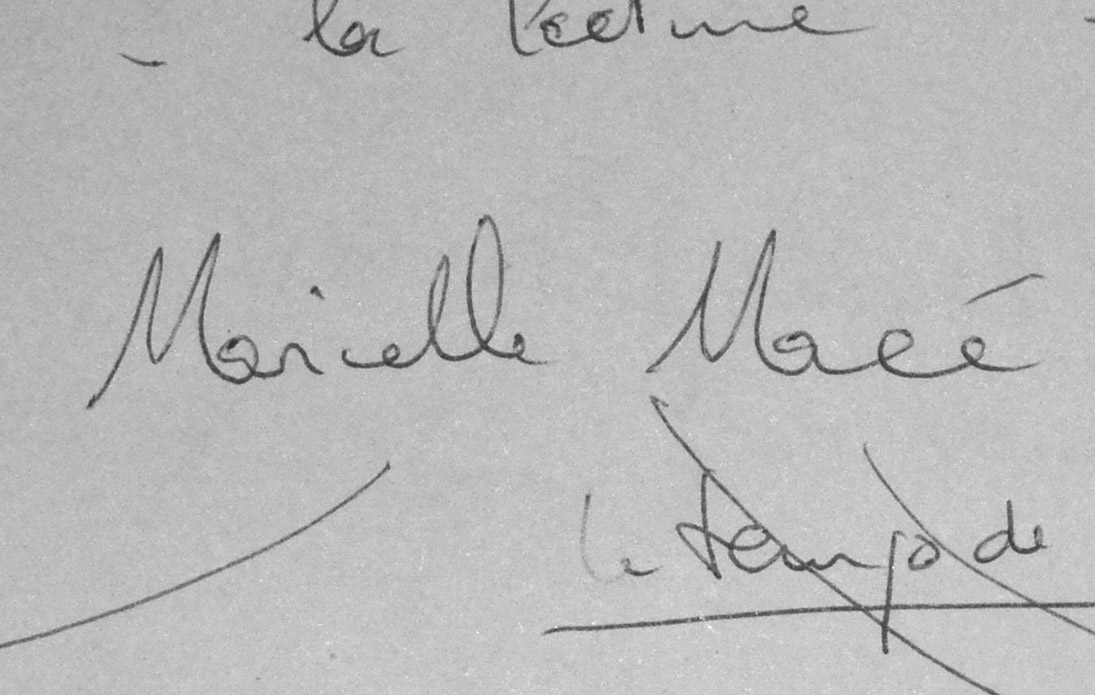 - la lecture -
Marielle Macé
Le temps de